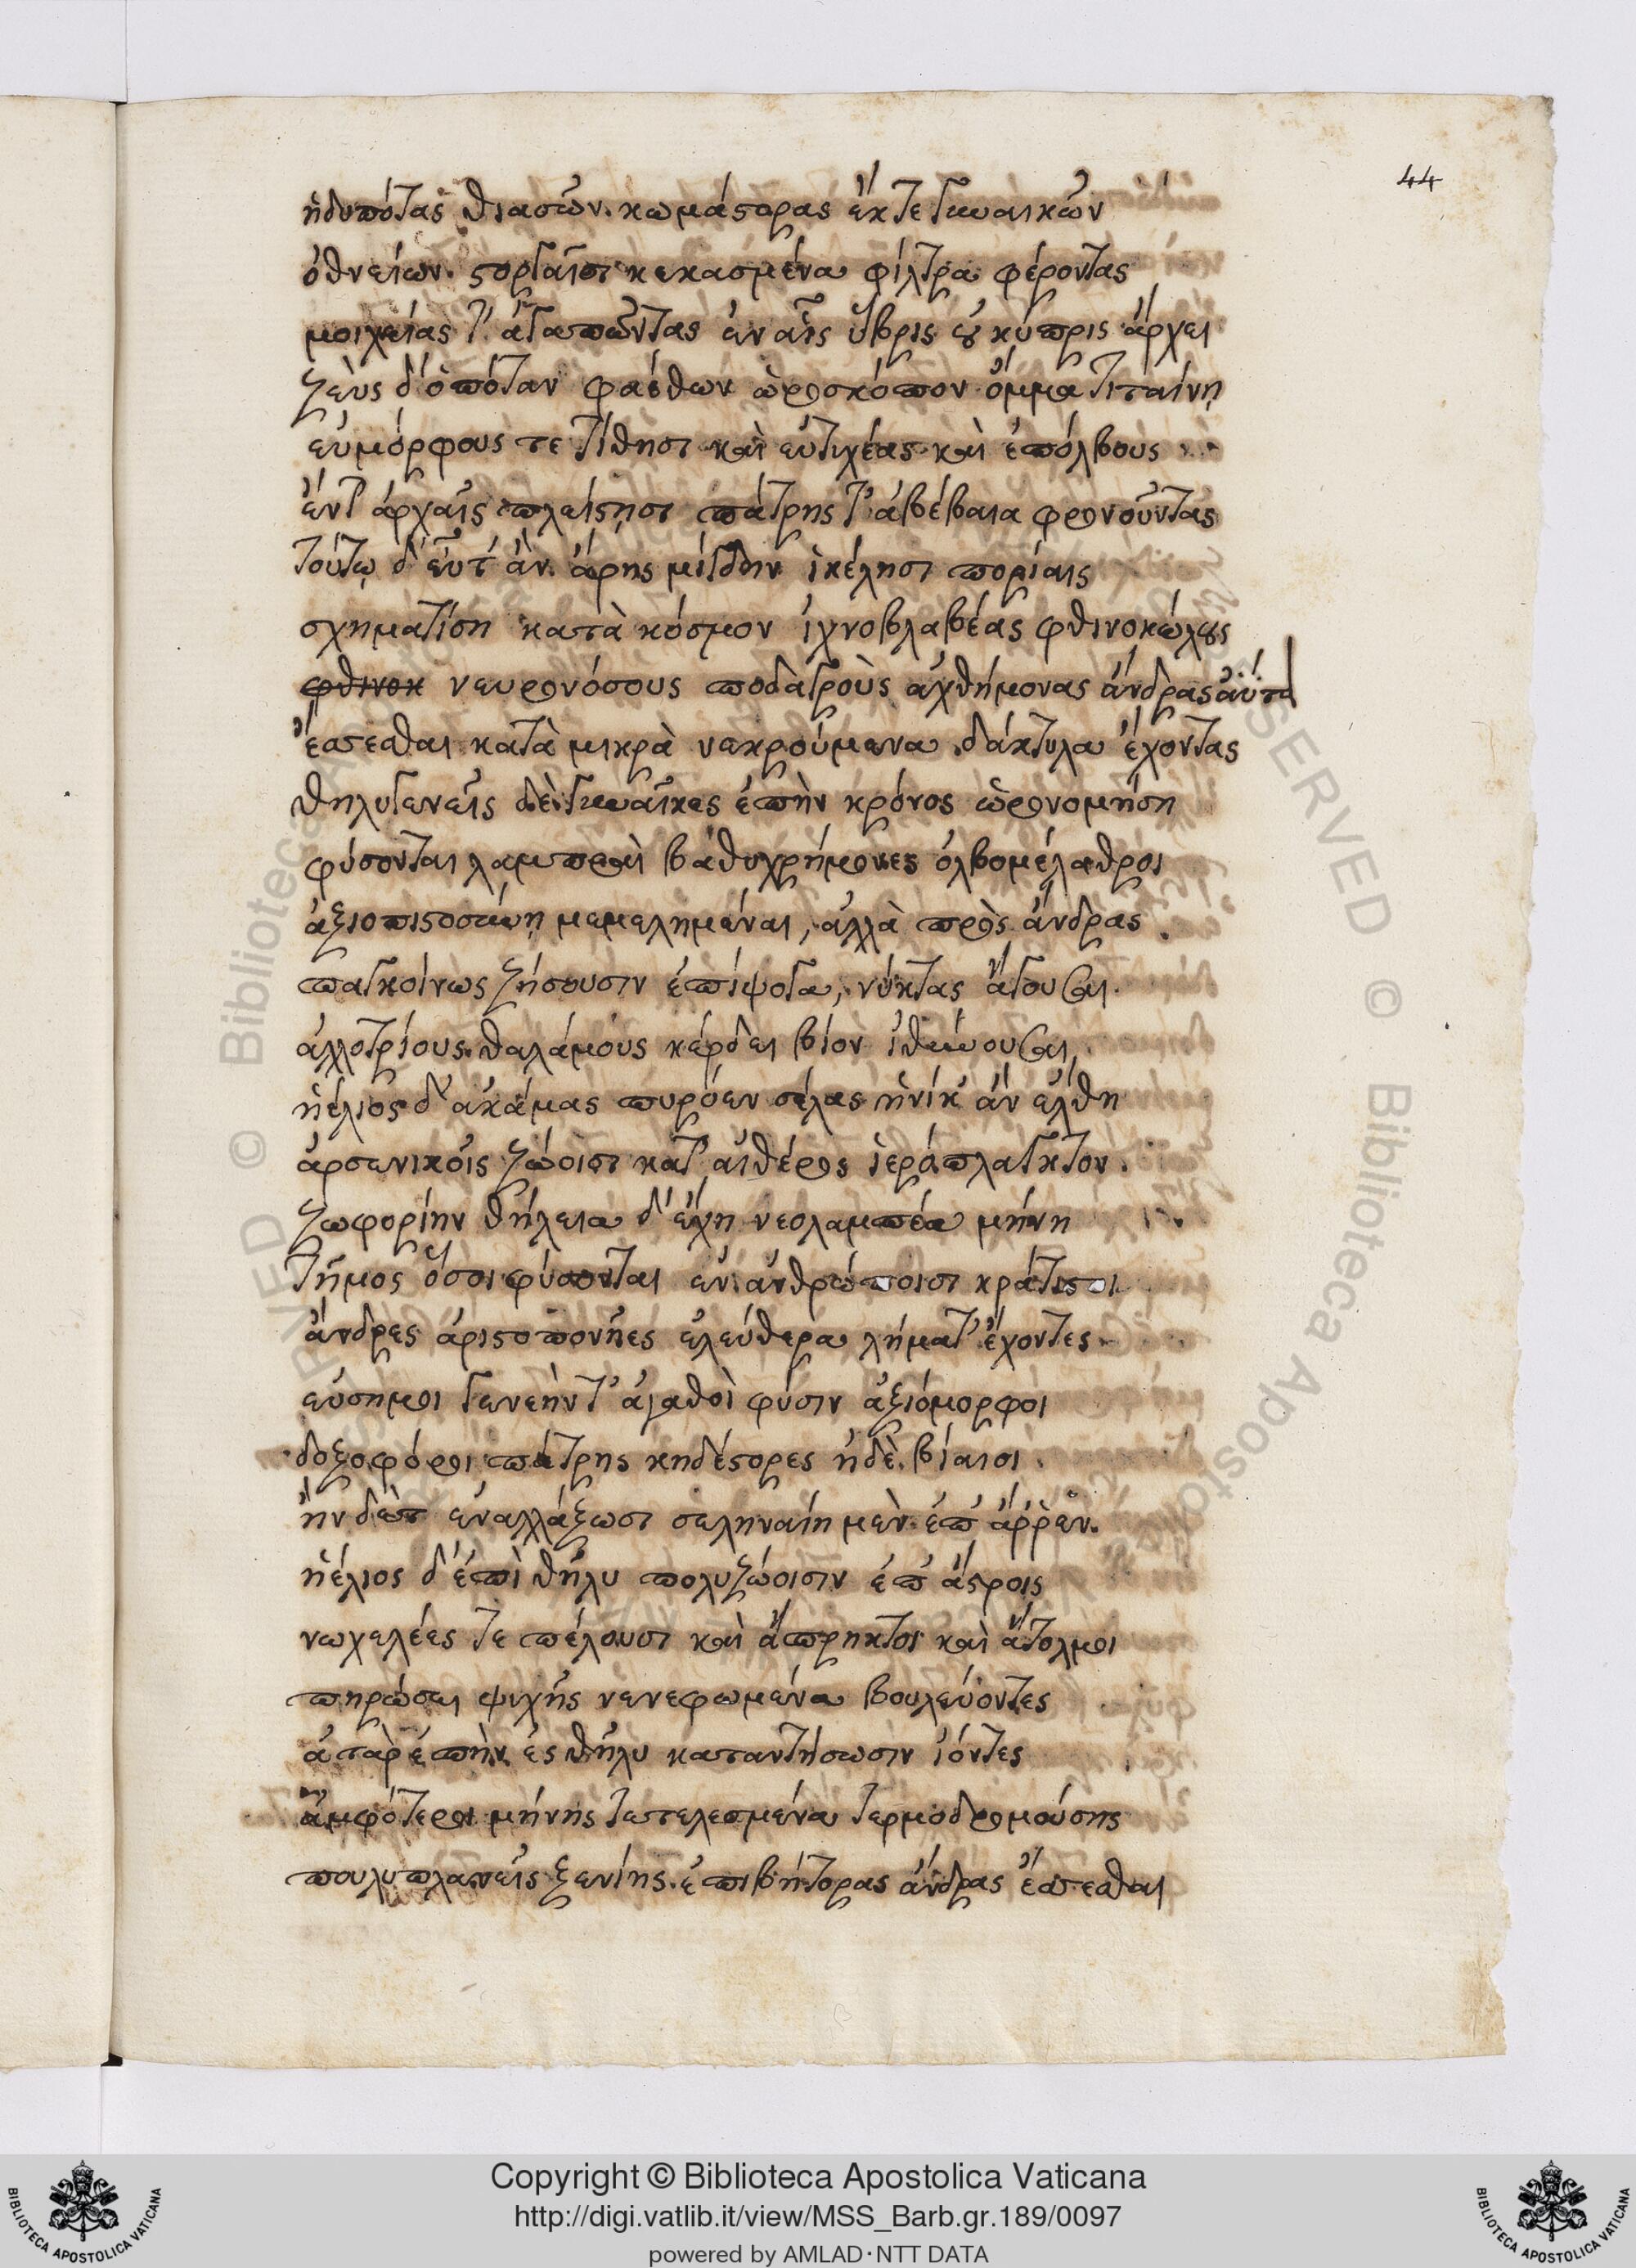 44
ἡδυπότας θιασῶν. κωμάστορας ἔκτε γυναικῶν
ὀθνείων. στοργαῖσι κεκασμένα φίλτρα φέροντας
μοιχείας τ' ἀγαπῶντας ἐν αἷς ὕβρις οὐ κύπρις ἄρχει
ζεὺς δ' ὁπόταν φαέθων ὡροσκόπον ὄμμα τιταίνῃ
εὐμόρφους τε τίθησι καὶ εὐτιχέας καὶ ἐπόλβους
ἔν τ' ἀρχαῖς πλείστησι πάτρης τ' ἀβέβαια φρονοῦντας
τούτῳ δ' εὖτ' ἂν ἄρης μίγδην ἰκέλησι πορίαις
σχηματίση κατὰ κόσμον ἰχνοβλαβέας φθινοκώλους
φθινοκ νευρονόσους ποδαγροὺς ἀχθήμονας ἄνδρας αὐτὰ
ἔσεσθαι κατὰ μικρὰ νεκρούμενα δάκτυλα ἔχοντας
θηλυγενεῖς δὲ γυναῖκες ἐπὴν κρόνος ὡρονομήση
φύσονται λαμπραὶ βαθυχρήμονες ὀλβομέλαθροι
ἀξιοπιστοσύνῃ μεμελημέναι, ἀλλὰ πρὸς ἄνδρας
παγκοίνως ζήσουσιν ἐπίψογα, νύκτας ἄγουσαι.
ἀλλοτρίους θαλάμους κέρδει βίον ἰθύνουσαι,
ἠέλιος δ' ἀκάμας πυρόεν σέλας ἡνίκ' ἂν ἔλθη
ἀρσενικοῖς ζώοισι κατ' αἰθέρος ἱερόπλαγκτον.
ζωφορίην θήλεια δ' ἔχη νεολαμπέα μήνη
τῆμος ὅσοι φύσονται ἐν ἀνθρώποισι κράτιστοι
ἄνδρες ἀριστοπονῆες ἐλεύθερα λήματ' ἔχοντες
εὔσημοι γενεὴν τ' ἀγαθοὶ φύσιν ἀξιόμορφοι
δοξοφόροι πάτρης κηδέστορες ἠδὲ βίαισι
ἢν δὲ ἐναλλάξωσι σεληναίη μὲν ἐπ' ἄρρεν.
ἠέλιος δ' ἐπὶ θῆλυ πολυζώοισιν ἐπ' ἄστροις
νωχελέες τε πέλουσι καὶ ἄπρηκτοι καὶ ἄτολμοι
πηρώσει ψιχῆς νενεφωμένα βουλεύοντες
ἀτὰρ ἐπὴν ἐς θῆλυ καταντήσωσιν ἰόντες
ἀμφότεροι μήνης τετελεσμένα τερμοδρομούσης
πουλυπλανεῖς ξενίης ἐπιβήτορας ἄνδρας ἔσεσθαι
Copyright © Biblioteca Apostolica Vaticana
http://digi.vatlib.it/view/MSS_Barb.gr.189/0097
powered by AMLAD · NTT DATA